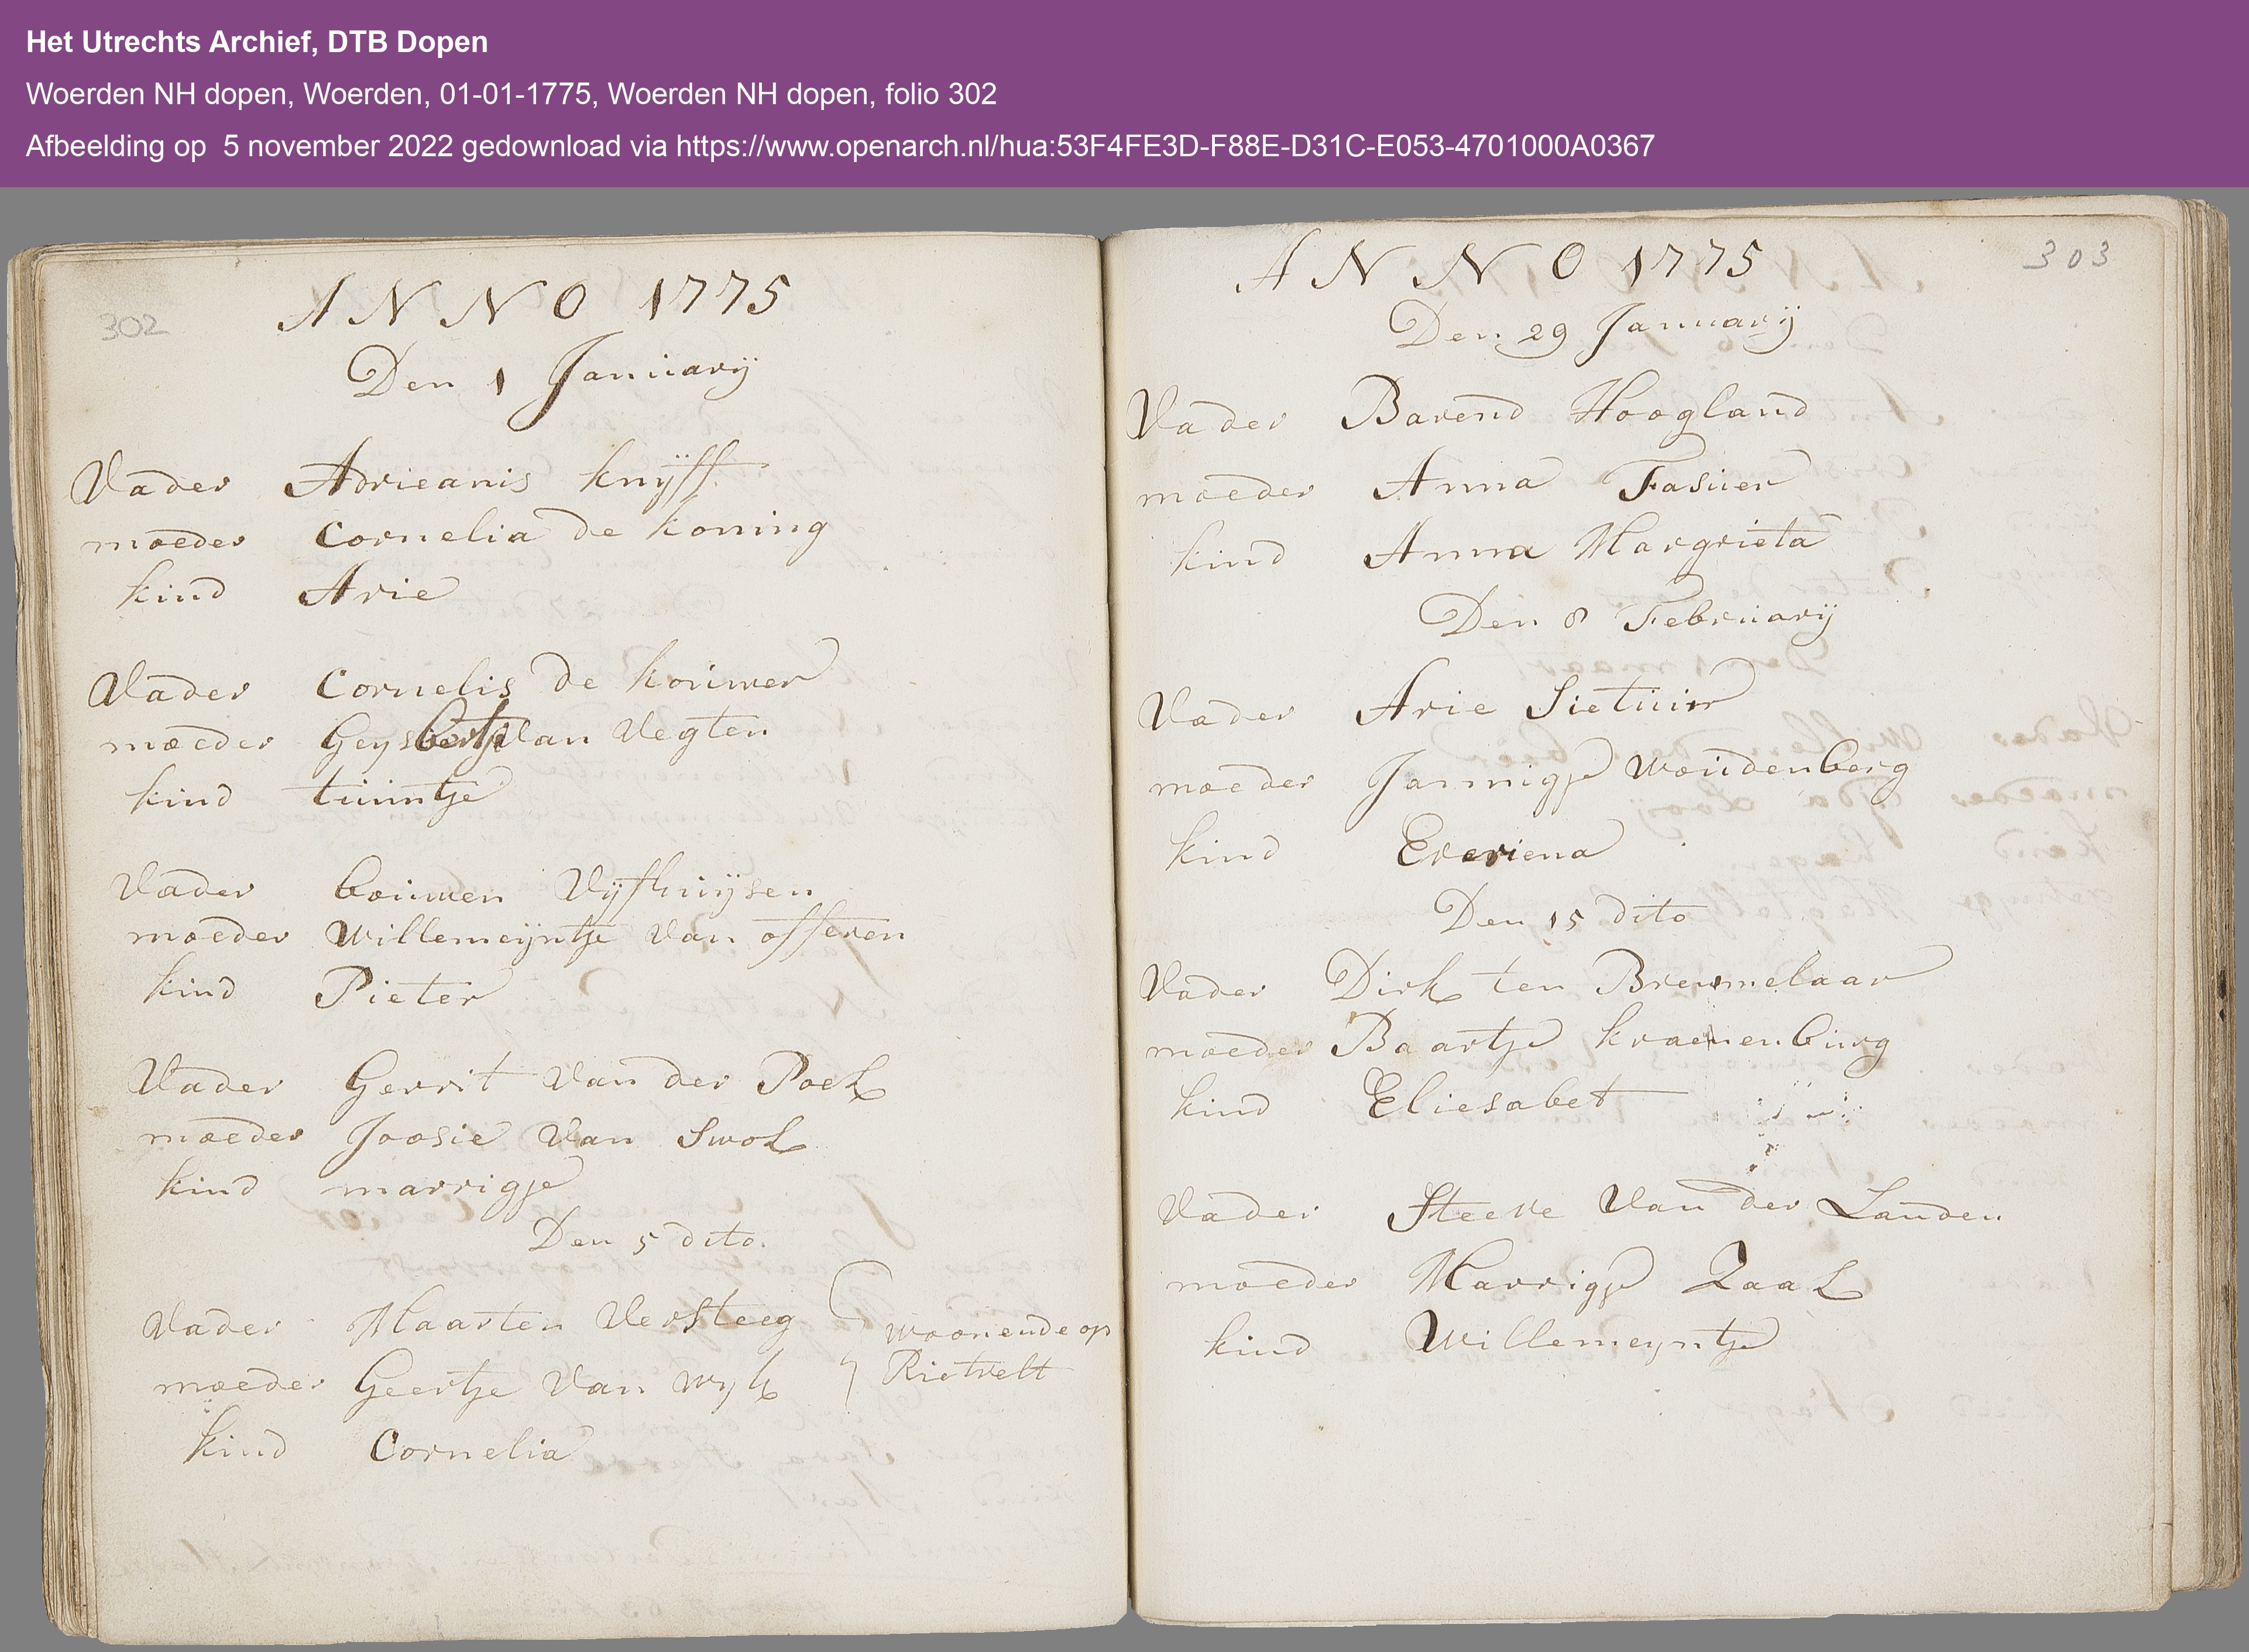 Het Utrechts Archief, DTB Dopen
Woerden NH dopen, Woerden, 01-01-1775, Woerden NH dopen, folio 302
Afbeelding op 5 november 2022 gedownload via https://www.openarch.nl/hua:53F4FE3D-F88E-D31C-E053-4701000A0367
302
ANNO 1775
Den 1 Januarij
Vader Adrieanis knijff
moeder Cornelia de koning
kind Arie
Vader Cornelis de kouwer
moeder Geysbertje Van Vegten
kind tuuntje
Vader bouwen Vijfhuijsen
moeder Willemeijntje Van offeren
kind Pieter
Vader Gerrit Van der Poel
moeder Joosie Van Swol
kind marrigje
Den 5 dito.
Vader Maarten Versteeg
moeder Geertje Van Wyk
woonende op
Rietvelt
kind Cornelia
303
ANNO 1775
Den 29 Januarij
Vader Barend Hoogland
moeder Anna Fasuer
kind Anna Margrieta
Den 8 Februarij
Vader Arie Sietuur
moeder Jannigje Woudenberg
kind Everiena
Den 15 dito
Vader Dirk ten Bremmelaar
moeder Baartje kraenenburg
kind Eliesabet
Vader Steeve Van der Landen
moeder Marrigje Zaal
kind Willemeyntje